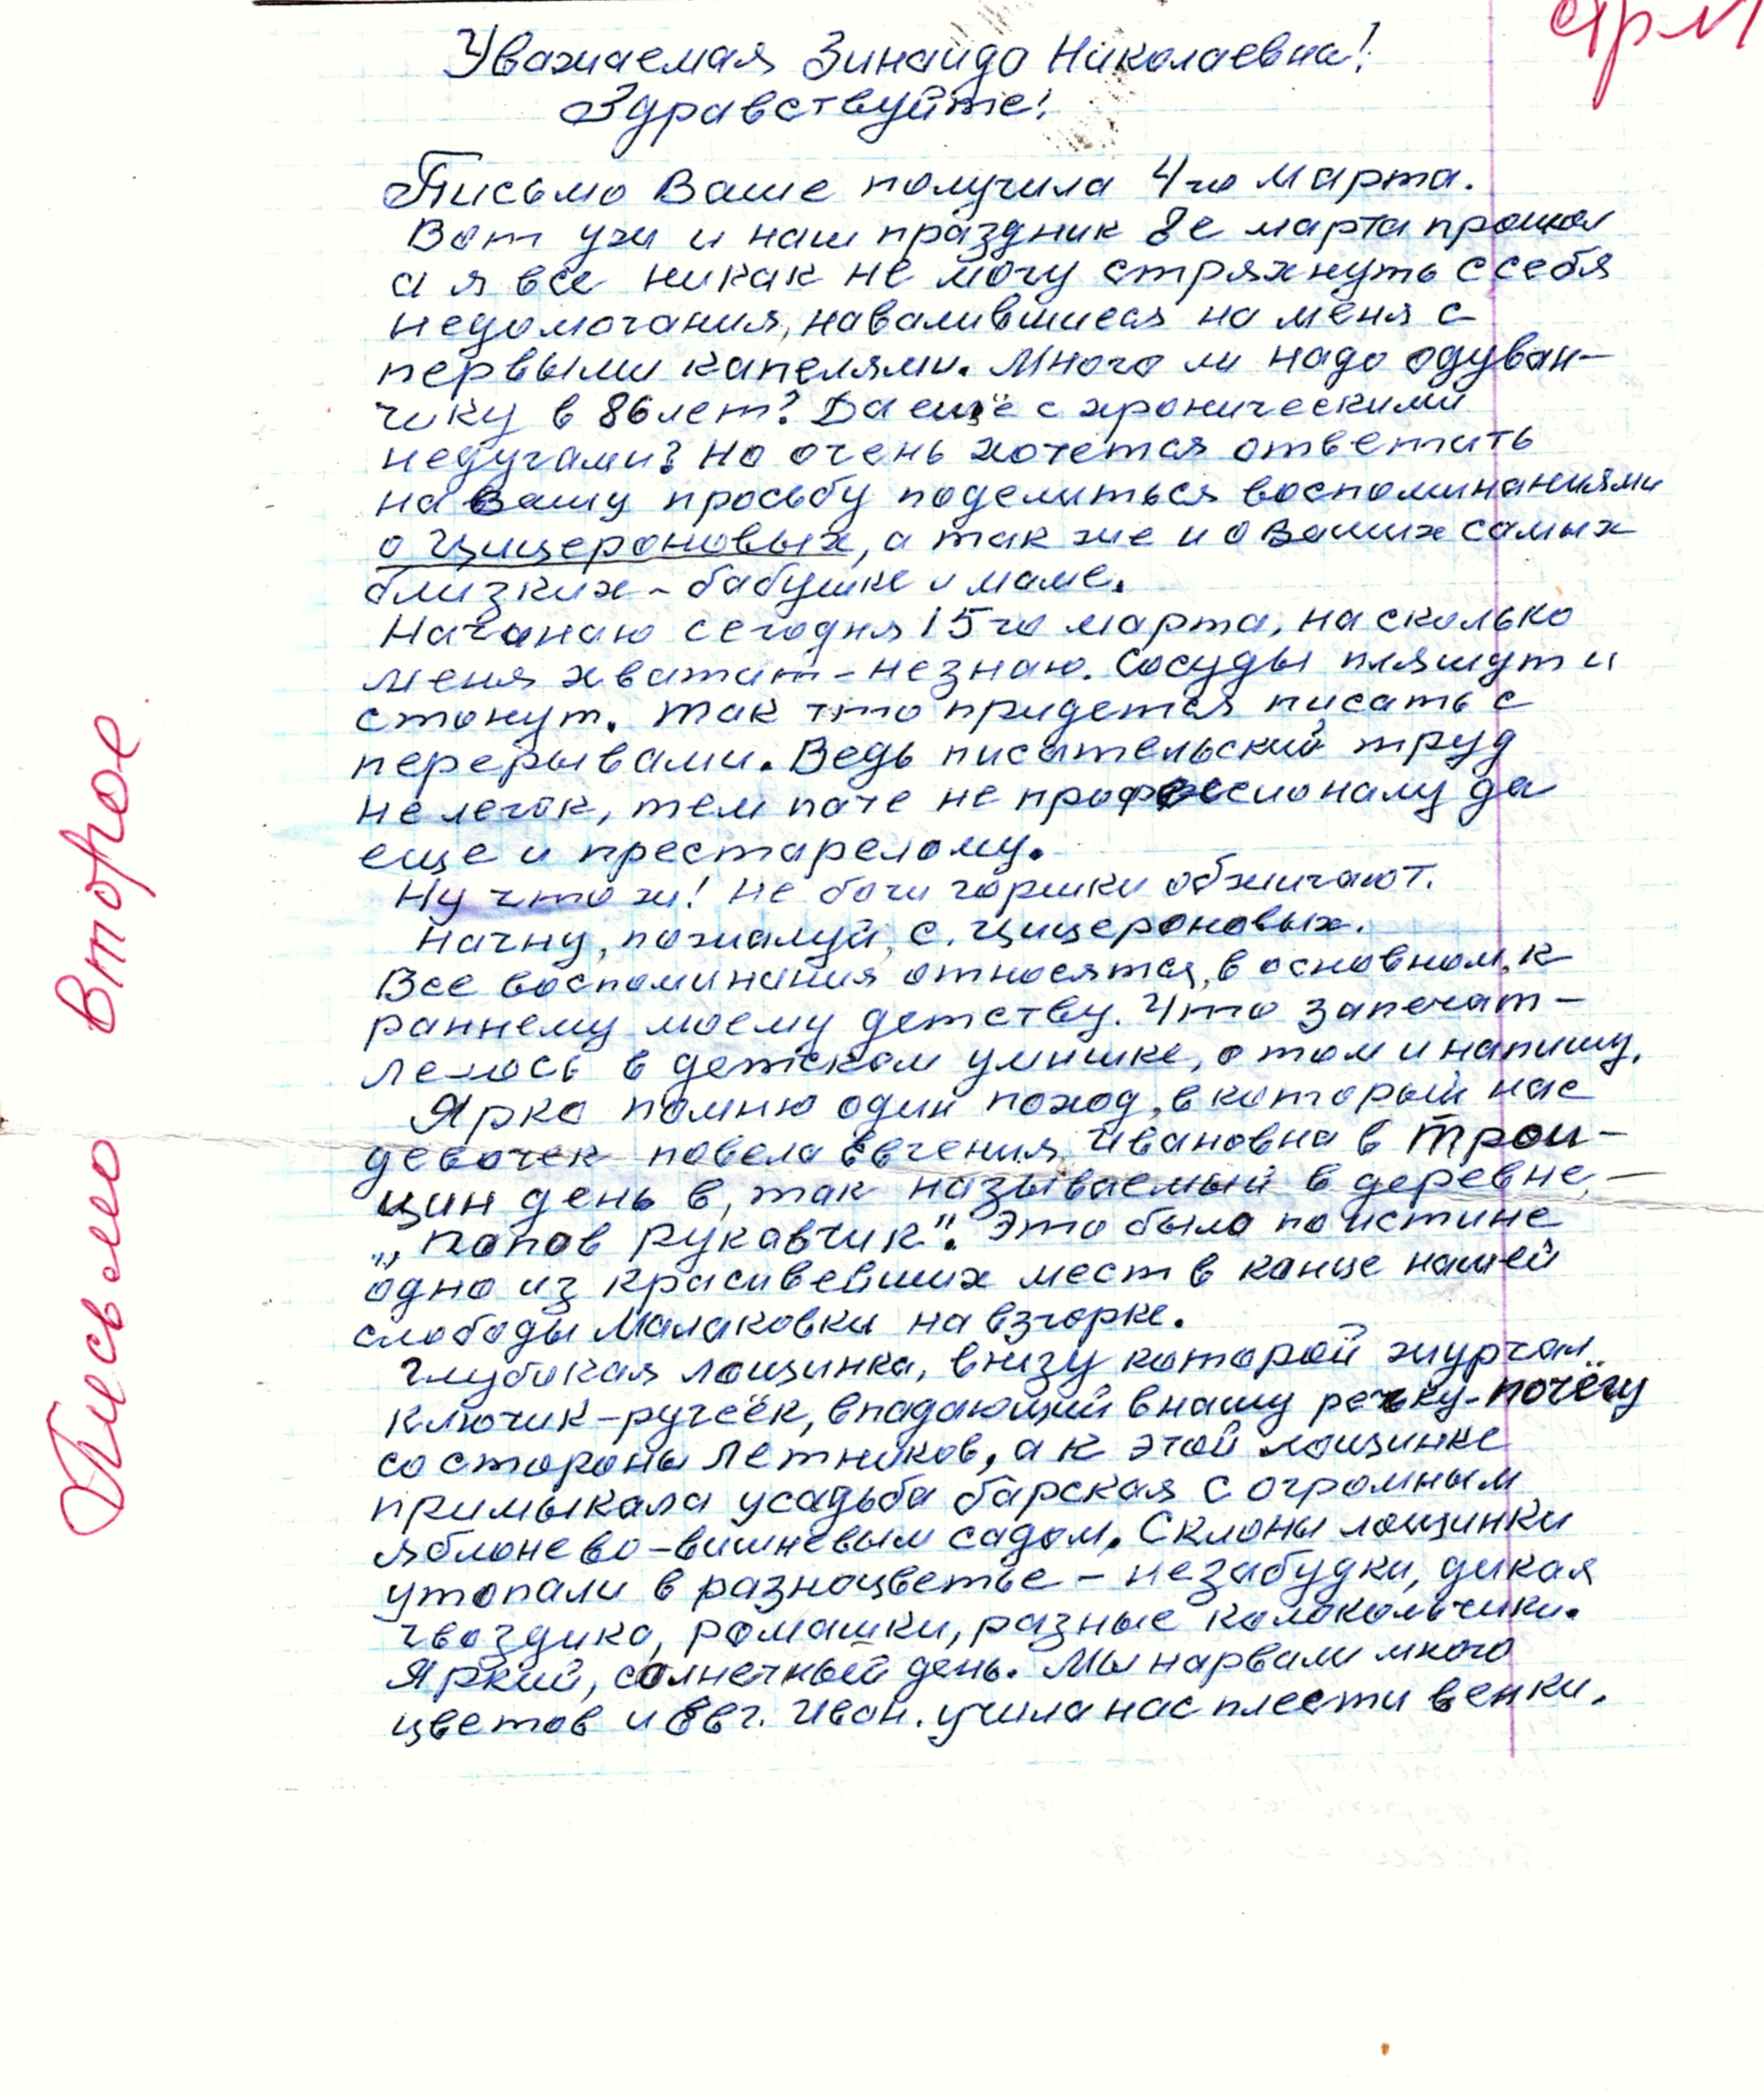 стр 1
Уважаемая Зинаида Николаевна!
Здравствуйте!
Письмо Ваше получила 4го марта.
Вот уж и наш праздник 8е марта прошел
а я все никак не могу стряхнуть с себя
недомогания, навалившиеся на меня с
первыми капелями. Много ли надо одуван-
чику в 86 лет? Да ещё с хроническими
недугами? Но очень хочется ответить
на Вашу просьбу поделиться воспоминаниями
о Цицероновых, а так же и о Ваших самых
близких - бабушке и маме.
Начинаю сегодня 15го марта, на сколько
меня хватит - не знаю. Сосуды пляшут и
стонут. Так что придется писать с
перерывами. Ведь писательский труд
не легок, тем паче не профессионалу да
еще и престарелому.
Ну что ж! Не боги горшки обжигают.
Начну, пожалуй, с Цицероновых.
Все воспоминания относятся, в основном, к
раннему моему детству. Что запечат-
лелось в детском умишке, о том и напишу.
Ярко помню один поход, в который нас
девочек повела Евгения Ивановна в Трои-
цин день в, так называемый в деревне, -
„Попов рукавчик". Это было поистине
одно из красивейших мест в конце нашей
слободы Малаховки на взгорке.
Глубокая лощинка, внизу которой журчал
ключик-ручеёк, впадающий в нашу речку-Почёгу
со стороны Летников, а к этой лощинке
примыкала усадьба барская с огромным
яблонево-вишневым садом. Склоны лощинки
утопали в разноцветье - незабудки, дикая
гвоздика, ромашки, разные колокольчики.
Яркий, солнечный день. Мы нарвали много
цветов и Евг. Иван. учила нас плести венки.
Письмо второе